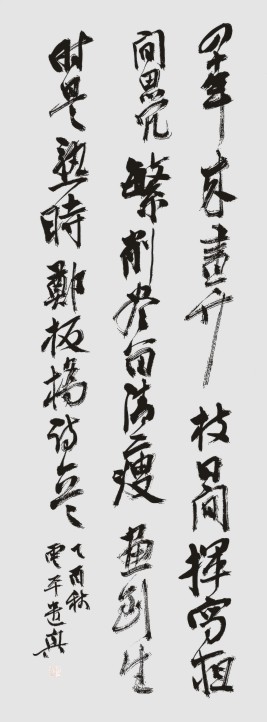 四十年来畫竹枝日間揮寫
間思冗繁削尽留清瘦畫到生
时是熟時鄭板橋詩
乙酉秋
平遣興